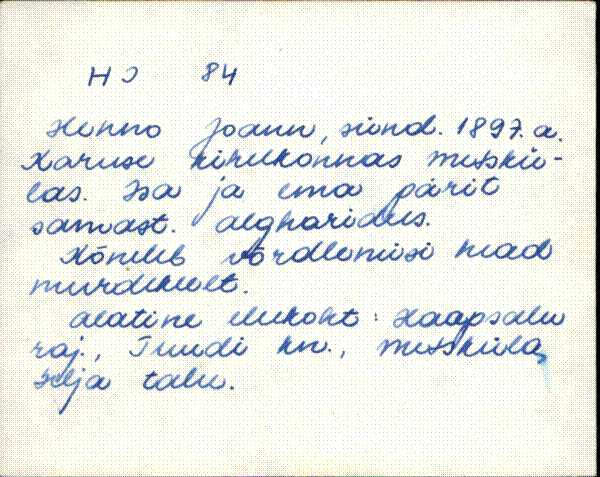 HJ 84
Henno Joann, sünd. 1897. a.
Karuse kihelkonnas Metskü-
las. Isa ja ema pärit
samast. Algharidus.
Kõneleb võrdlemisi head
murdekeelt.
Alatine elukoht: Haapsalu
raj., Tuudi kn., Metsküla,
Selja talu.